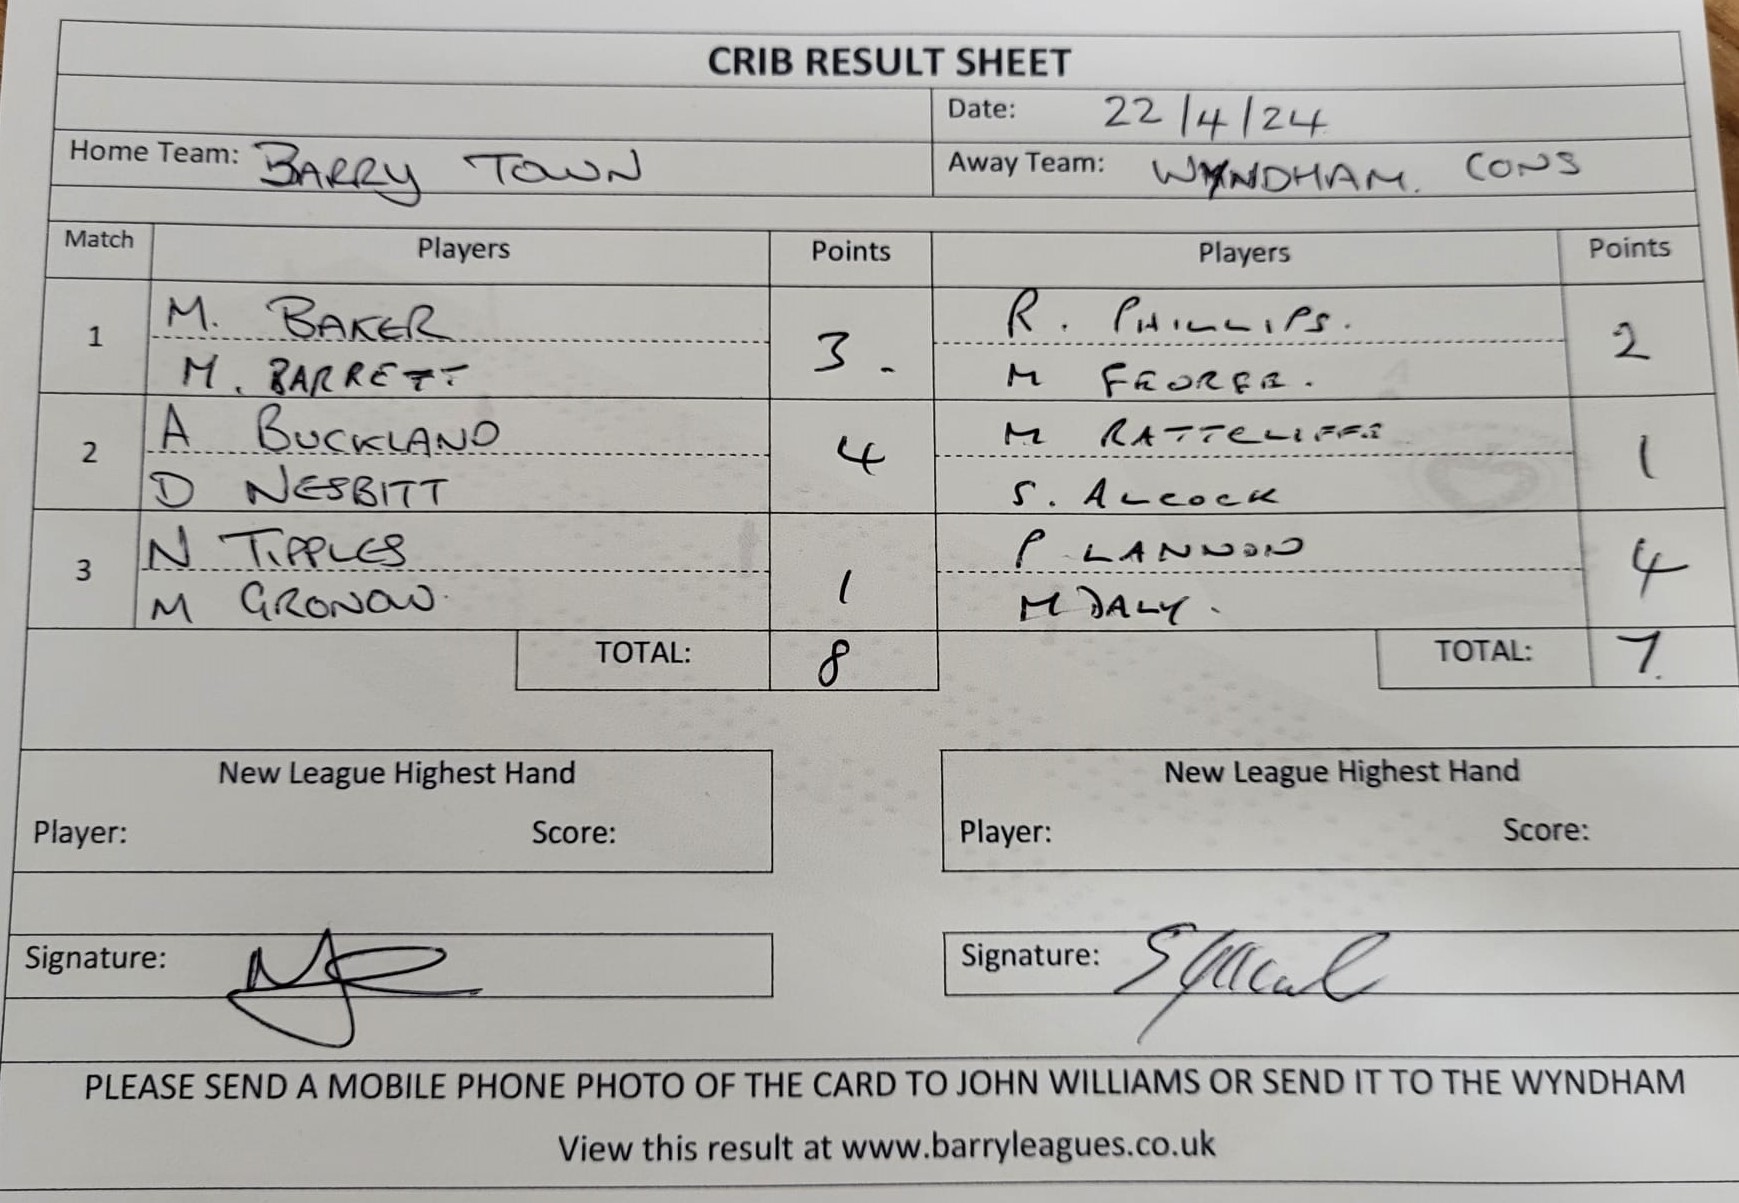 CRIB RESULT SHEET
Date: 22/4/24
Home Team: BARRY TOWN Away Team: WYNDHAM. CONS
Match Players Points Players Points
1 M. BAKER 3. R. PHILLIPS. 2
M. BARRETT M
2 A BUCKLAND 4 M RATTCLIFFE 1
D NESBITT S. ALCOCK
3 N TIPPLES 1 P LANNON 4
M GRONOW. M DALY.
TOTAL: 8 TOTAL: 7.
New League Highest Hand New League Highest Hand
Player: Score: Player: Score:
Signature: Signature:
PLEASE SEND A MOBILE PHONE PHOTO OF THE CARD TO JOHN WILLIAMS OR SEND IT TO THE WYNDHAM
View this result at www.barryleagues.co.uk